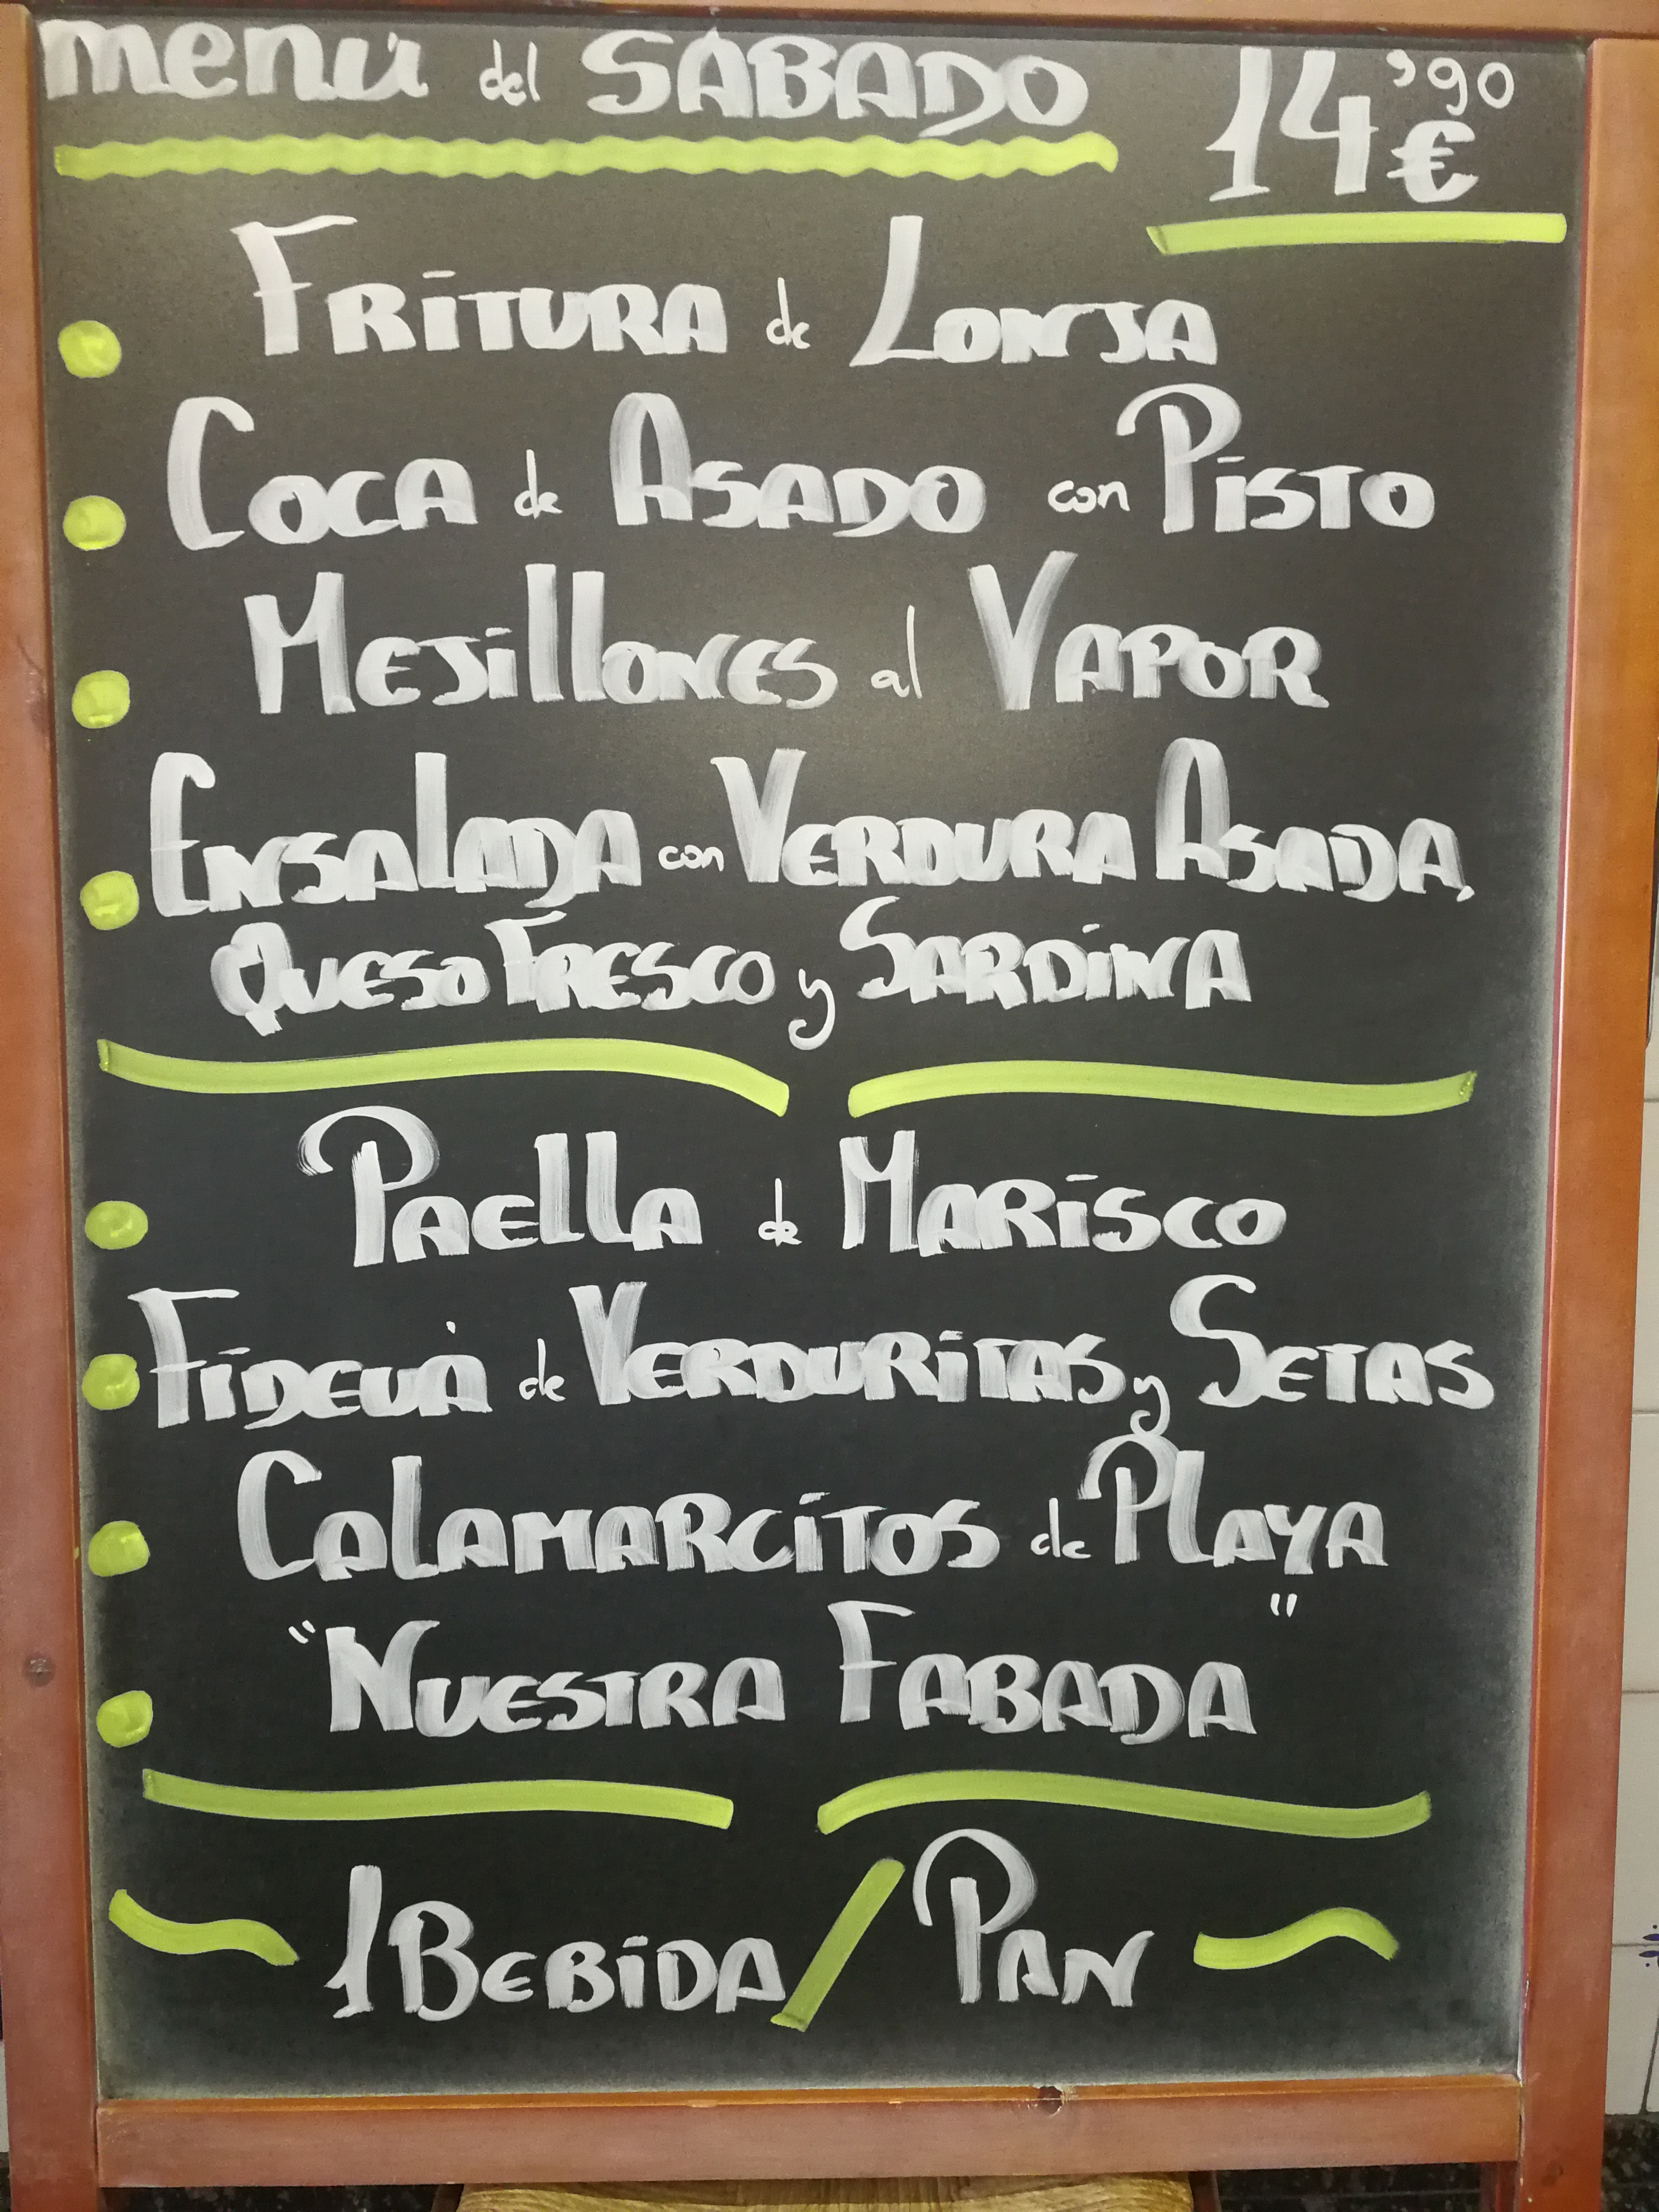 menú del SABADO 14'90 €
FRITURA de LONJA
COCA de ASADO con PISTO
MEJillONES al VAPOR
ENSALADA con VERDURA ASADA,
QUESO FRESCO y SARDINA
PAELLA de MARISCO
FIDEUÀ de VERDURITAS y SETAS
CALAMARCITOS de PLAYA
"NUESTRA FABADA"
1 BEBIDA / PAN